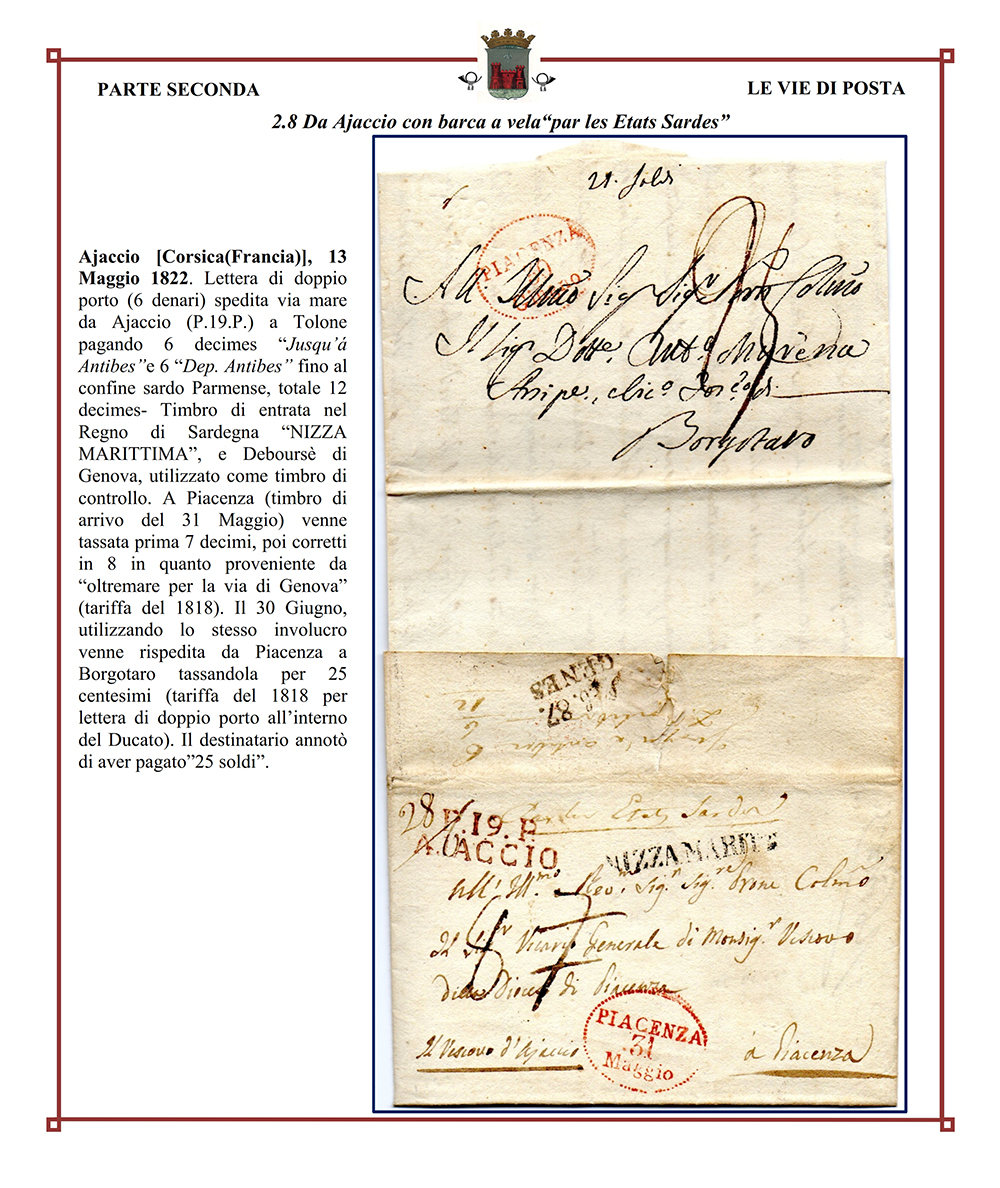 PARTE SECONDA
LE VIE DI POSTA
2.8 Da Ajaccio con barca a vela“par les Etats Sardes”
Ajaccio [Corsica(Francia)], 13
Maggio 1822. Lettera di doppio
porto (6 denari) spedita via mare
da Ajaccio (P.19.P.) a Tolone
pagando 6 decimes “Jusqu’á
Antibes”e 6 “Dep. Antibes” fino al
confine sardo Parmense, totale 12
decimes- Timbro di entrata nel
Regno di Sardegna “NIZZA
MARITTIMA”, e Deboursè di
Genova, utilizzato come timbro di
controllo. A Piacenza (timbro di
arrivo del 31 Maggio) venne
tassata prima 7 decimi, poi corretti
in 8 in quanto proveniente da
“oltremare per la via di Genova”
(tariffa del 1818). Il 30 Giugno,
utilizzando lo stesso involucro
venne rispedita da Piacenza a
Borgotaro tassandola per 25
centesimi (tariffa del 1818 per
lettera di doppio porto all’interno
del Ducato). Il destinatario annotò
di aver pagato”25 soldi”.
soldi
PIACENZA
25
Il Sig. Dott.
Borgotaro
GENES
87.
6
6
12
28
P.19.P.
AJACCIO
NIZZA MARITT
All' Ill.mo Rev.m Sig.r Sig.re Prone Colmo
Il Sig.r Vicario Generale di Monsig.r Vescovo
della Diocesi di Piacenza
8 7
PIACENZA
31
Maggio
Il Vescovo d'Ajaccio
a Piacenza